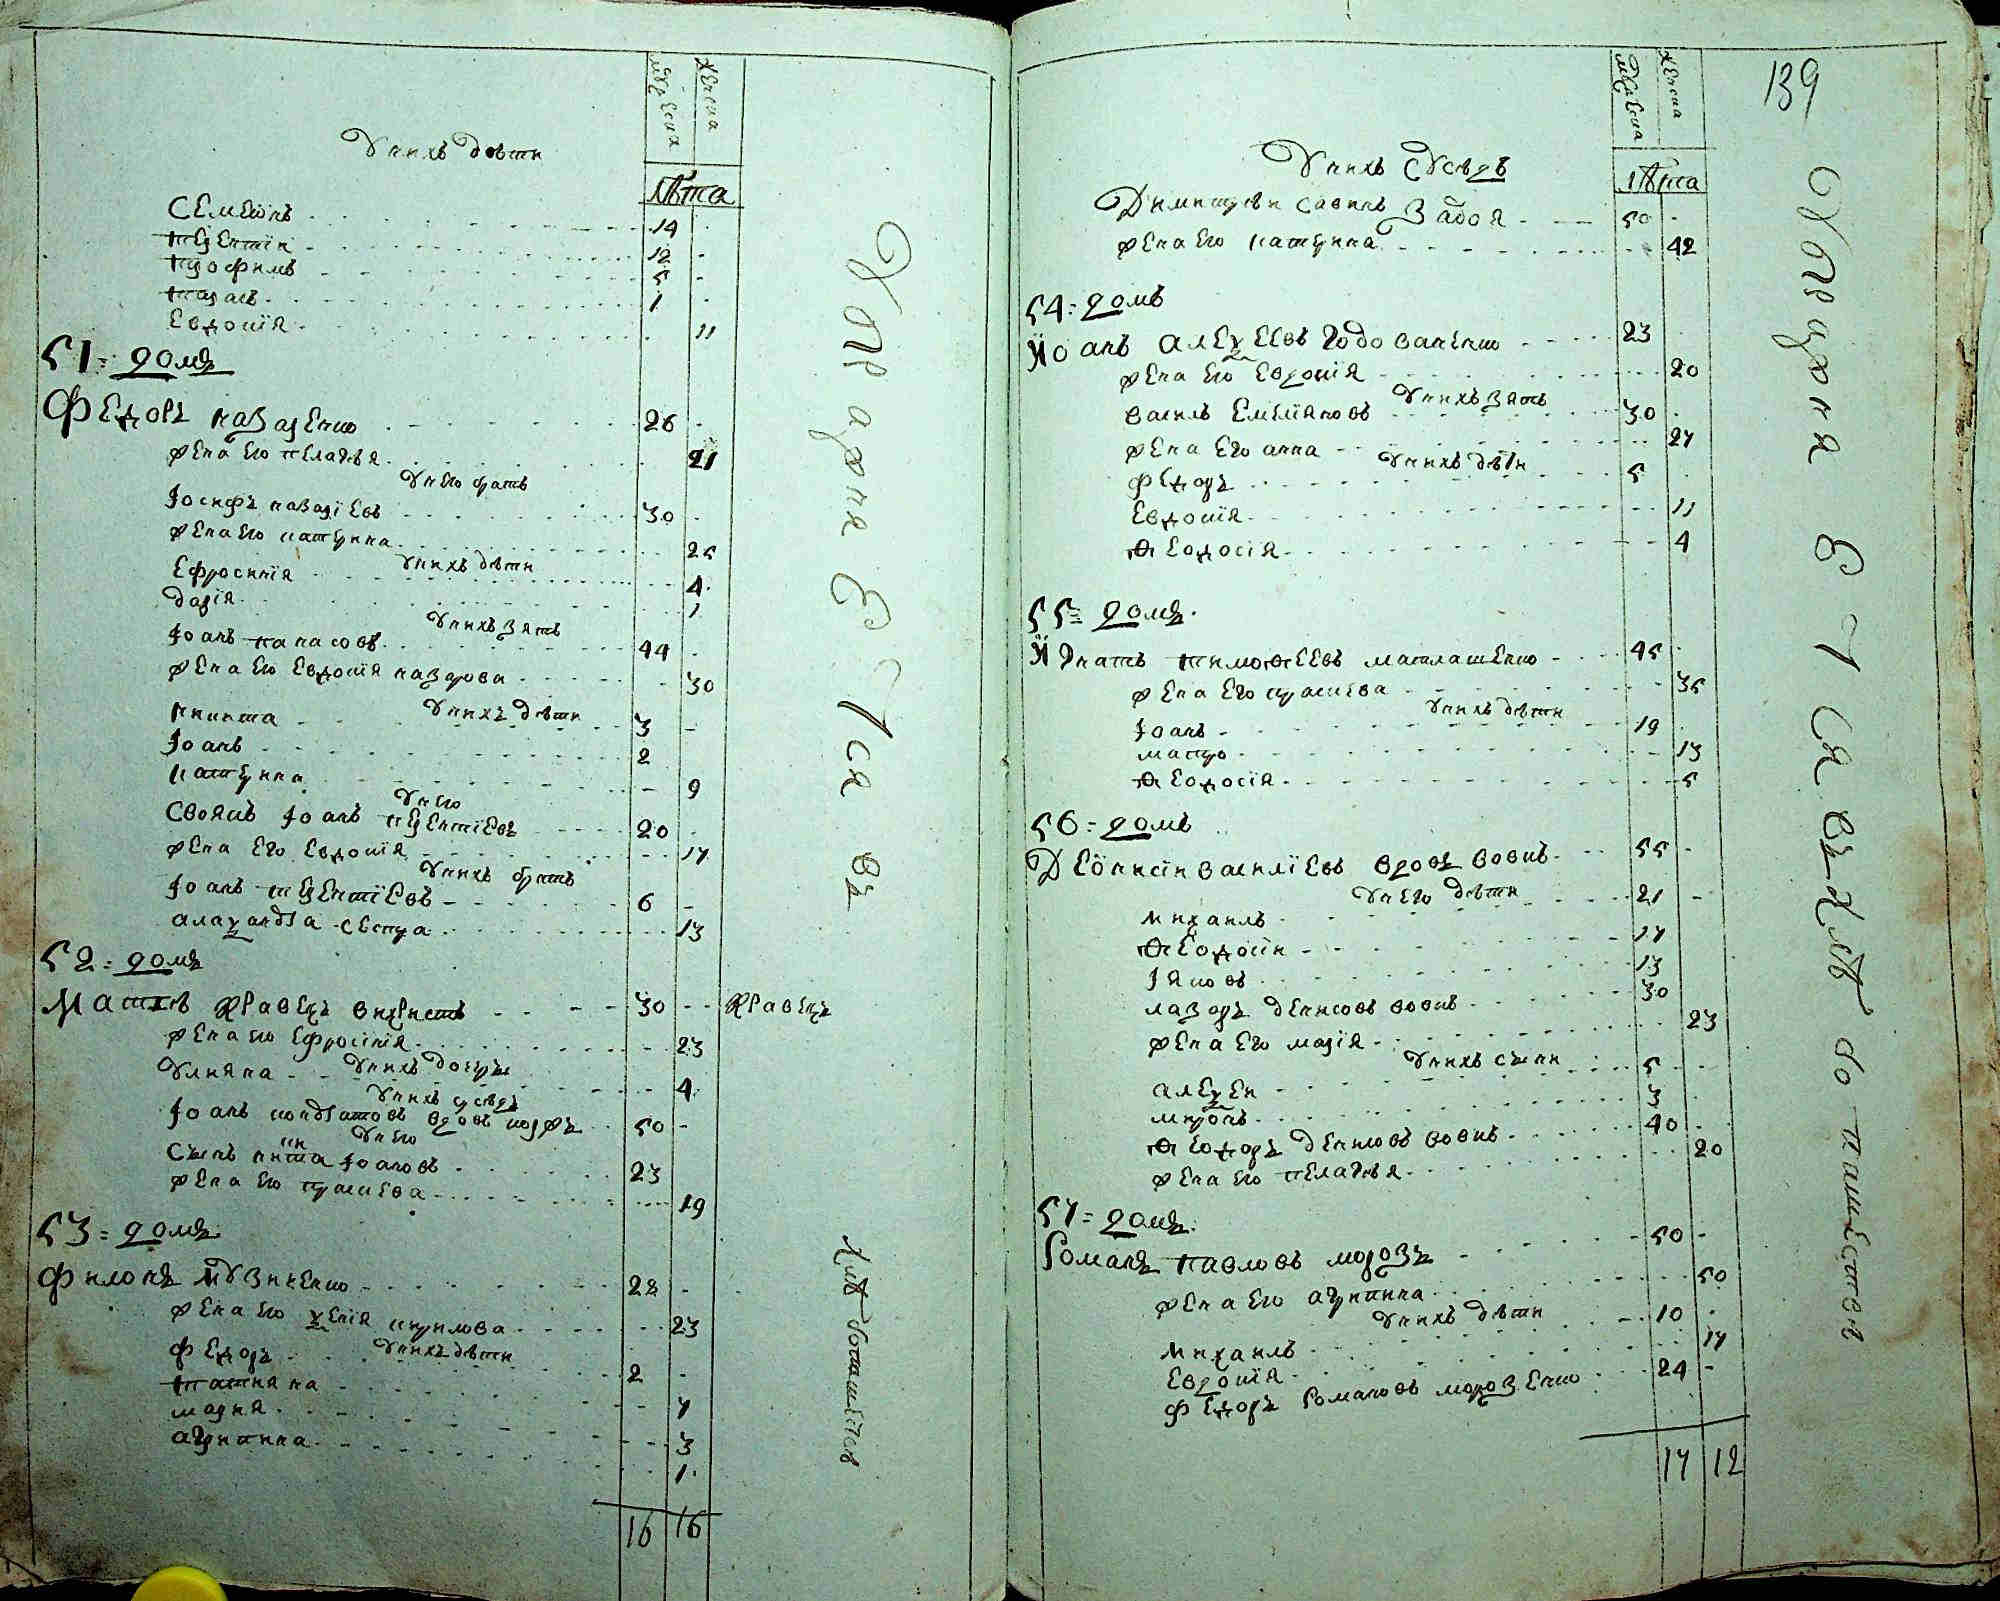 мужеска
женска
У нихъ дѣти
лѣта
Семеонъ 14
терентiи 12
трофимъ 5
тарасъ 1
Евдокiя 11
51 = домъ
Федоръ назаренко 26
жена его пелагея 21
У него братъ
Iосифъ назарiевъ 30
жена его катерина 25
У нихъ дѣти
Ефросинiя 4
дарiя 1
У нихъ зять
Iоанъ панасовъ 44
жена его Евдокiя назарова 30
У нихъ дѣти
никита 3
Iоанъ 2
катерина 9
У него
Своякъ Iоанъ терентiевъ 20
жена его Евдокiя 17
У нихъ братъ
Iоанъ терентiевъ 6
алаxандра сестра 13
52 = домъ
Матвѣ кравецъ вихристъ 30 кравецъ
жена его Ефросинiя 23
У нихъ дочерь
Улияна 4
У нихъ сусѣдъ
Iоанъ кондратовъ вдовъ коржъ 50
У него
Сынъ никита Iоановъ 23
жена его праскева 19
53 = домъ
Филонъ Музиченко 28
жена его ксенiя кирилова 23
У нихъ дѣти
Федоръ 2
татияна 7
мария 3
агрипина 1
16 16
Укражня Е Iся въ
хлѣбопашествѣ
139
мужеска
женска
лѣта
У нихъ Сусѣдъ
Димитрѣи савинъ Забоя 50
жена его катерина 42
54 = домъ
Иоанъ алеxеевъ Годованенко 23
жена его Евдокiя 20
У нихъ зять
василь Емелiяновъ 30
жена Его анна 27
У нихъ дѣти
Федоръ 5
Евдокiя 11
Ѳеодосiя 4
55 = домъ
Игнатъ тимоѳеевъ маслашенко 45
жена Его праскева 35
У нихъ дѣти
Iоанъ 19
матро 13
Ѳеодосiя 5
56 = домъ
Деонисiи василiевъ вдовъ вовкъ 55
У него дѣти
михаилъ 21
Ѳеодосiи 17
Iяковъ 13
лазоръ денисовъ вовкъ 30
жена Его марiя 23
У нихъ сыни
алеxеи 5
миронъ 3
Ѳеодоръ денисовъ вовкъ 40
жена его пелагея 20
57 = домъ
Романъ павловъ морозъ 50
жена его агрипина 50
У нихъ дѣти
михаилъ 10
Евдокiя 17
Федоръ Романовъ морозенко 24
17 12